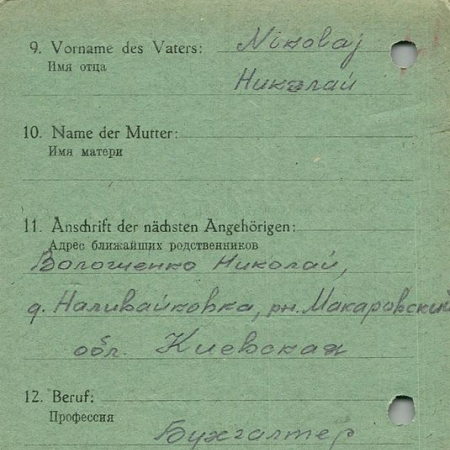 9. Vorname des Vaters: Nikolaj
Имя отца
Николай
10. Name der Mutter:
Имя матери
11. Anschrift der nächsten Angehörigen:
Адрес ближайших родственников
Волошенко Николай,
д. Наливайковка, рн. Макаровский
обл. Киевская
12. Beruf:
Профессия
Бухгалтер